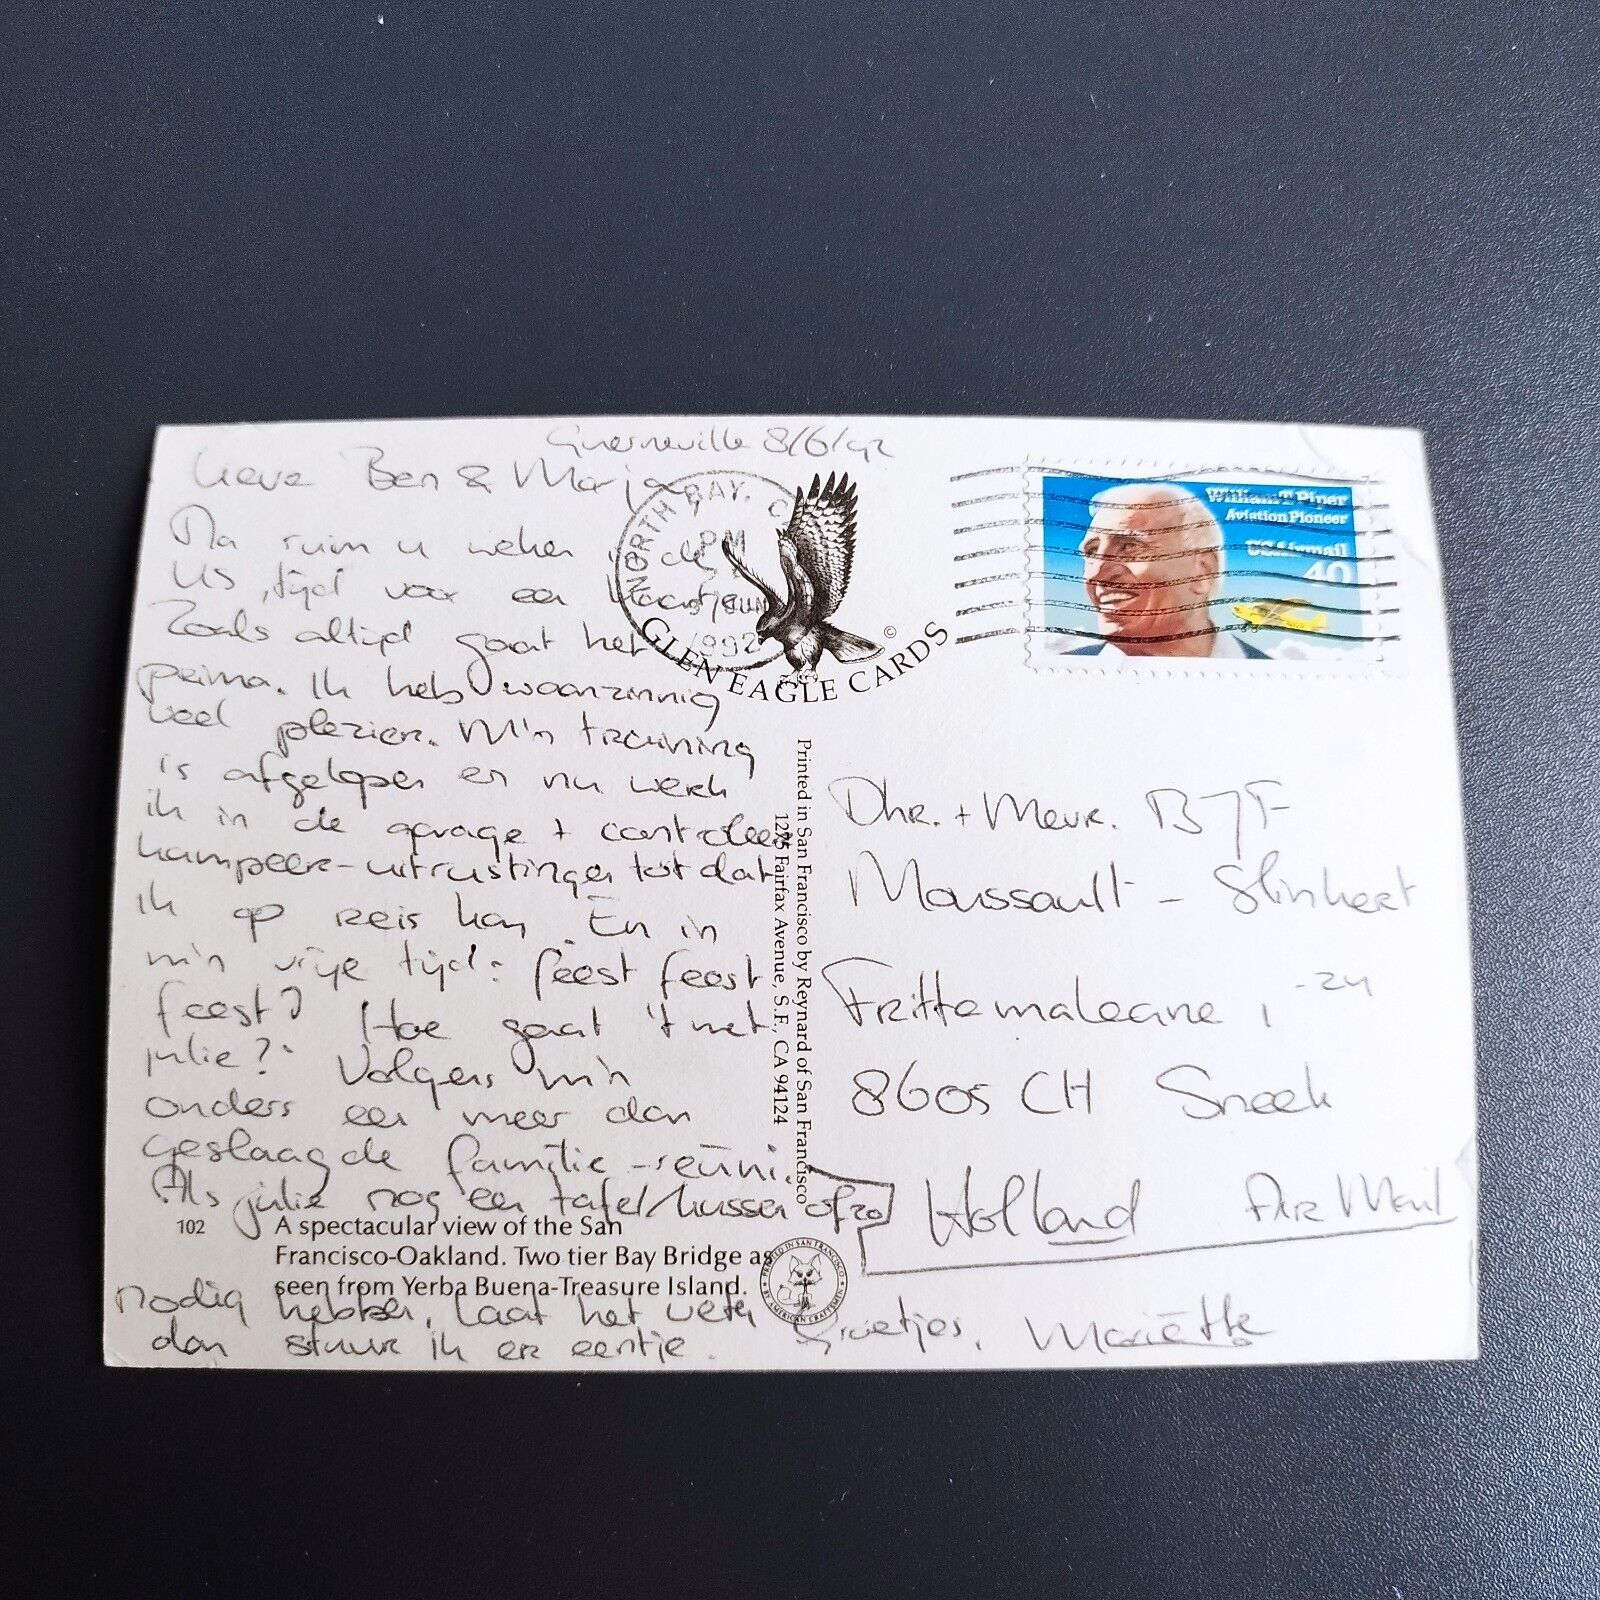 Guerneville 8/6/92
Lieve Ben & Marja
Na ruim 4 weken in de
US, tijd voor een kaartje
Zoals altijd gaat het
prima. Ik heb waanzinnig
veel plezier. M'n training
is afgelopen en nu werk
ik in de garage + controleer
kampeer-uitrustingen totdat
ik op reis kan. En in
m'n vrije tijd: feest feest
feest! Hoe gaat 't met
jullie? Volgens mij
onders een meer dan
geslaagde familie-reüni.
Als jullie nog een tafel/kussen of zo
nodig hebben, laat het weten
dan stuur ik er eentje. Groetjes, Mariëtte
NORTH BAY, C
PM
JUN
1992
GLEN EAGLE CARDS ©
William T. Piper
Aviation Pioneer
USAirmail
40
Printed in San Francisco by Reynard of San Francisco
1275 Fairfax Avenue, S.F., CA 94124
Dhr. + Mevr. B J F
Moussault - Slinkert
8605 CH Sneek
Holland Air Mail
102 A spectacular view of the San
Francisco-Oakland. Two tier Bay Bridge as
seen from Yerba Buena-Treasure Island.
PRINTED IN SAN FRANCISCO
BY AMERICAN CRAFTSMEN